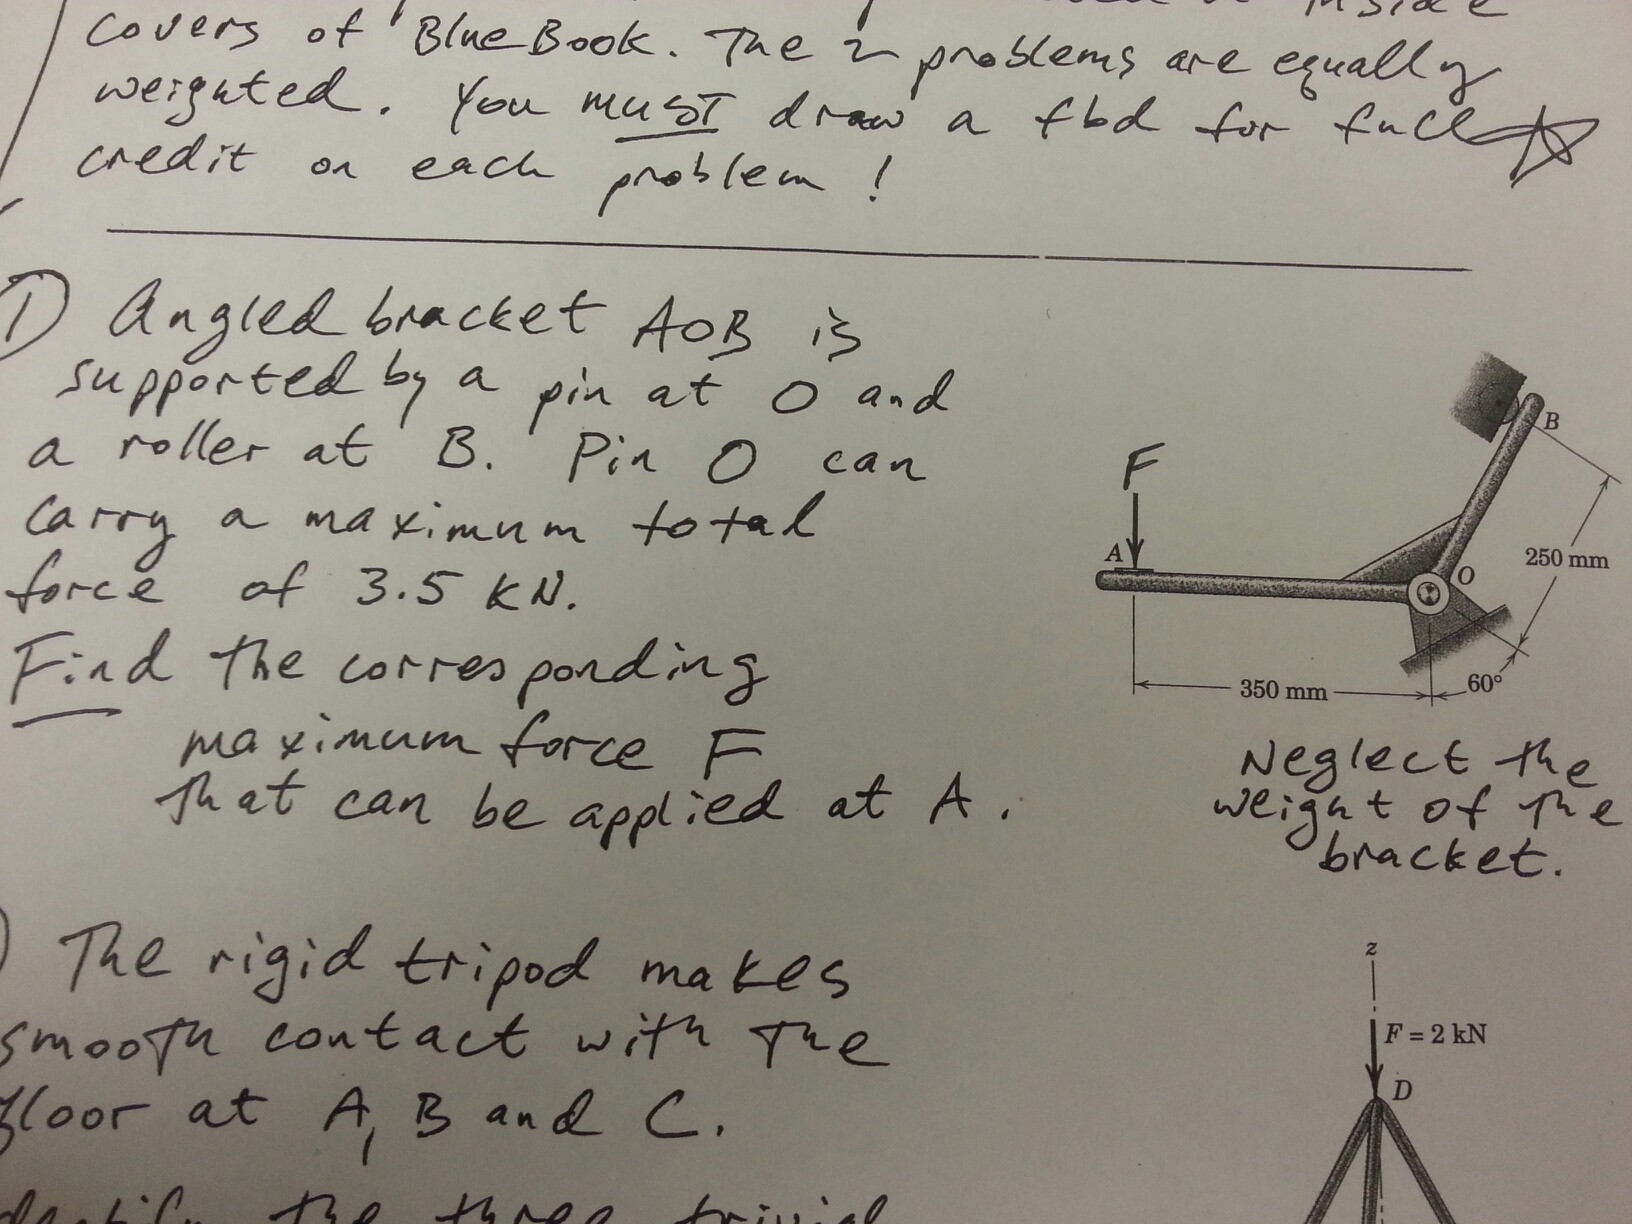 inside
covers of Blue Book. The 2 problems are equally
weighted. You MUST draw a fbd for full
credit on each problem!
1) Angled bracket AOB is
supported by a pin at O and
a roller at B. Pin O can
carry a maximum total
force of 3.5 KN.
Find the corresponding
maximum force F
that can be applied at A.
F
A
B
O
250 mm
350 mm
60°
Neglect the
weight of the
bracket.
) The rigid tripod makes
smooth contact with the
floor at A, B and C.
the three trivial
z
F = 2 kN
D